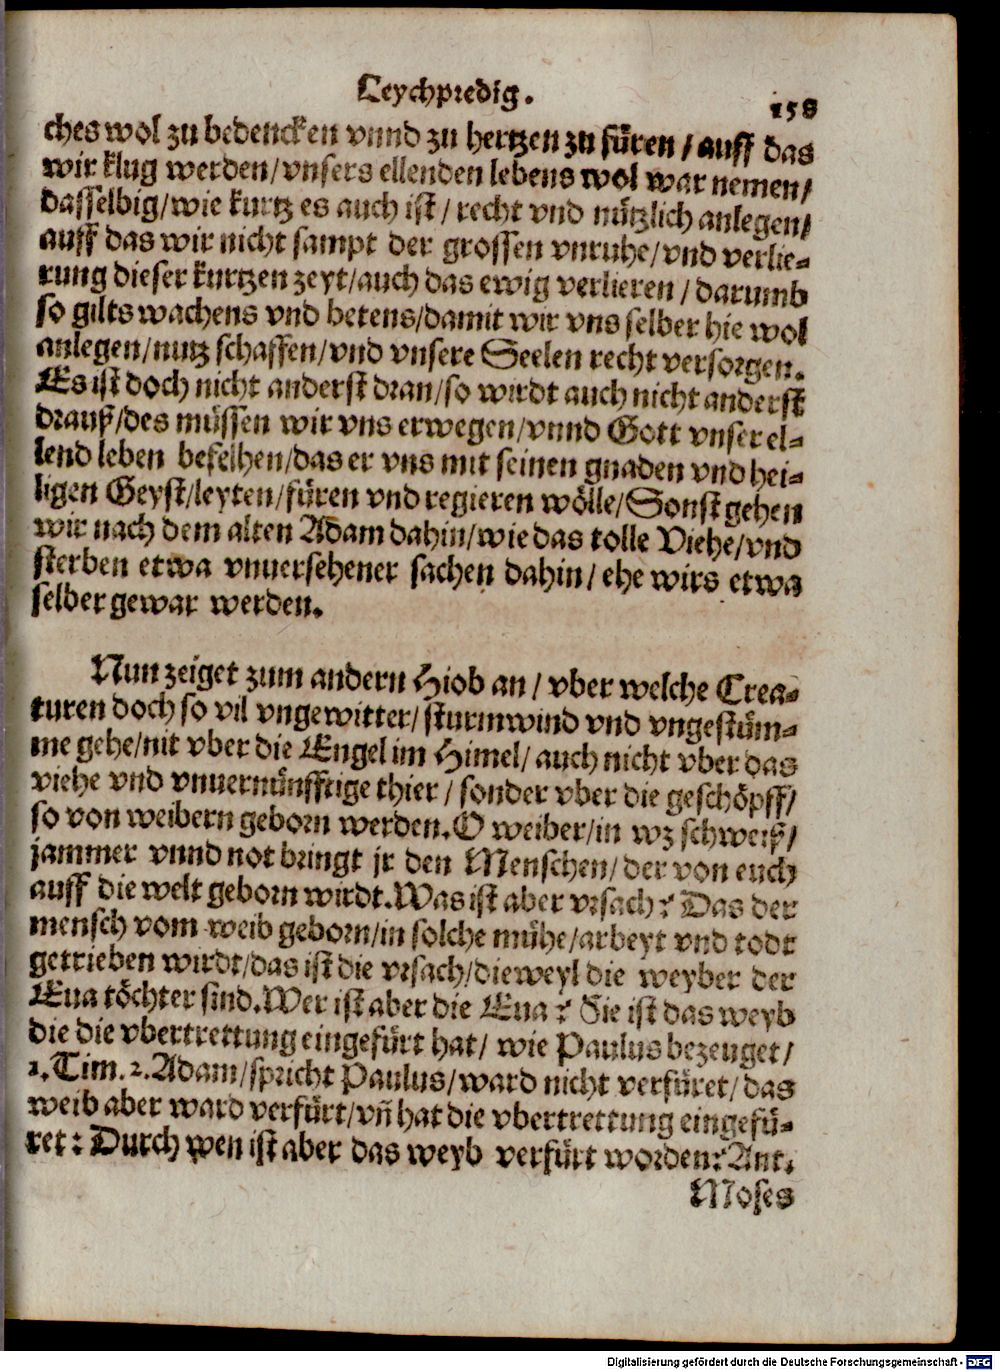 Leychpredig.
158
ches wol zu bedencken vnnd zu hertzen zu füren / auff das
wir klug werden/vnsers ellenden lebens wol war nemen/
dasselbig/wie kurtz es auch ist / recht vnd nützlich anlegen/
auff das wir nicht sampt der grossen vnruhe/vnd verlie-
rung dieser kurtzen zeyt/auch das ewig verlieren / darumb
so gilts wachens vnd betens/damit wir vns selber hie wol
anlegen/nutz schaffen/vnd vnsere Seelen recht versorgen.
Es ist doch nicht anderst dran/so wirdt auch nicht anderst
drauß/des müssen wir vns erwegen/vnnd Gott vnser el-
lend leben befelhen/das er vns mit seinen gnaden vnd hei-
ligen Geyst/leyten/füren vnd regieren wölle/Sonst gehen
wir nach dem alten Adam dahin/wie das tolle Viehe/vnd
sterben etwa vnuersehener sachen dahin/ ehe wirs etwa
selber gewar werden.
Nun zeiget zum andern Hiob an / vber welche Crea-
turen doch so vil vngewitter/ sturmwind vnd vngestüm-
me gehe/nit vber die Engel im Himel/ auch nicht vber das
viehe vnd vnuernünfftige thier / sonder vber die geschöpff/
so von weibern geborn werden.O weiber/in wz schweiß/
jammer vnnd not bringt jr den Menschen/ der von euch
auff die welt geborn wirdt.Was ist aber vrsach? Das der
mensch vom weib geborn/in solche mühe/arbeyt vnd todt
getrieben wirdt/das ist die vrsach/dieweyl die weyber der
Eua töchter sind.Wer ist aber die Eua? Sie ist das weyb
die die vbertrettung eingefürt hat/ wie Paulus bezeuget/
1. Tim. 2. Adam/spricht Paulus/ward nicht verfüret/das
weib aber ward verfürt/vñ hat die vbertrettung eingefü-
ret: Durch wen ist aber das weyb verfürt worden? Ant.
Moses
Digitalisierung gefördert durch die Deutsche Forschungsgemeinschaft - DFG